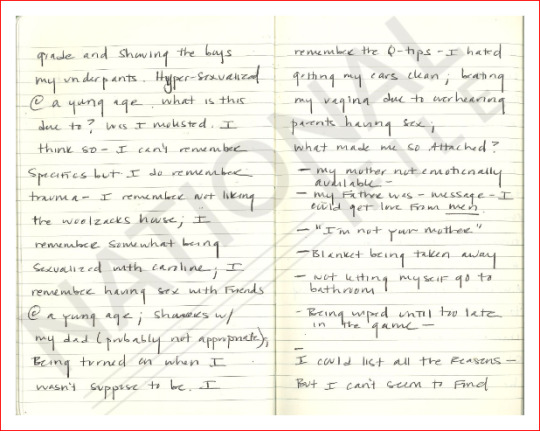 grade and showing the boys
my underpants. Hyper-sexualized
@ a young age. what is this
due to? was I molested. I
think so - I can't remember
specifics but I do remember
trauma - I remember not liking
the woolzacks house; I
remember somewhat being
sexualized with caroline; I
remember having sex with friends
@ a young age; showers w/
my dad (probably not appropriate),
Being turned on when I
wasn't suppose to be. I
remember the Q-tips - I hated
getting my ears clean; beating
my vagina due to overhearing
parents having sex;
what made me so attached?
- my mother not emotionally
available -
- my Father was - message - I
could get love from men
- "I'm not your mother"
- Blanket being taken away
- not letting myself go to
bathroom
- Being wiped until too late
in the game -
-
I could list all the reasons -
But I can't seem to find
NATIONAL
FILE